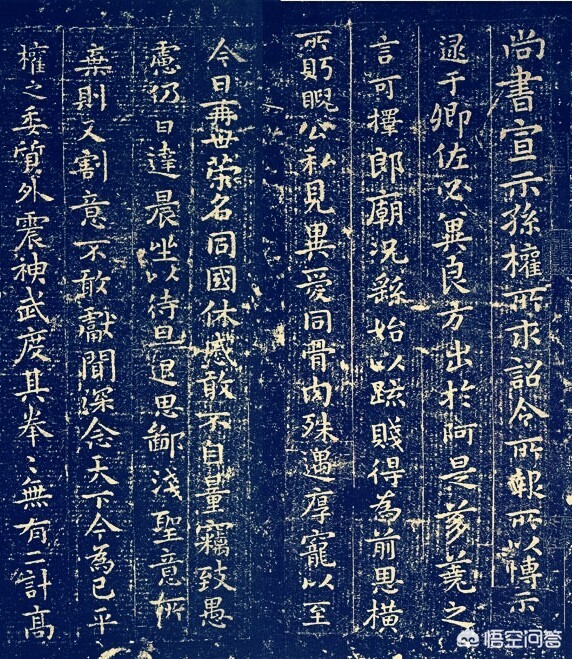 尚書宣示孫權所求詔令所報所以博示
逮于卿佐必冀良方出於阿是芻蕘之
言可擇郎廟況繇始以疏賤得為前恩橫
所眄睨公私見異愛同骨肉殊遇厚寵以至
今日再世榮名同國休慼敢不自量竊致愚
慮仍日達晨坐以待旦退思鄙淺聖意所
棄則又割意不敢獻聞深念天下今為已平
權之委質外震神武度其拳〻無有二計高
悟空问答